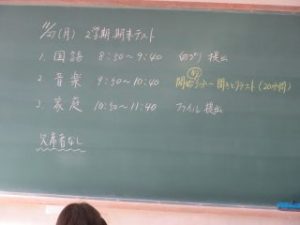 (月) 2学期 期末テスト
1. 国語 8:50〜9:40 提出
2. 音楽 9:50〜10:40 聞きとりテスト (20分間)
3. 家庭 10:50〜11:40 ファイル提出
欠席者なし